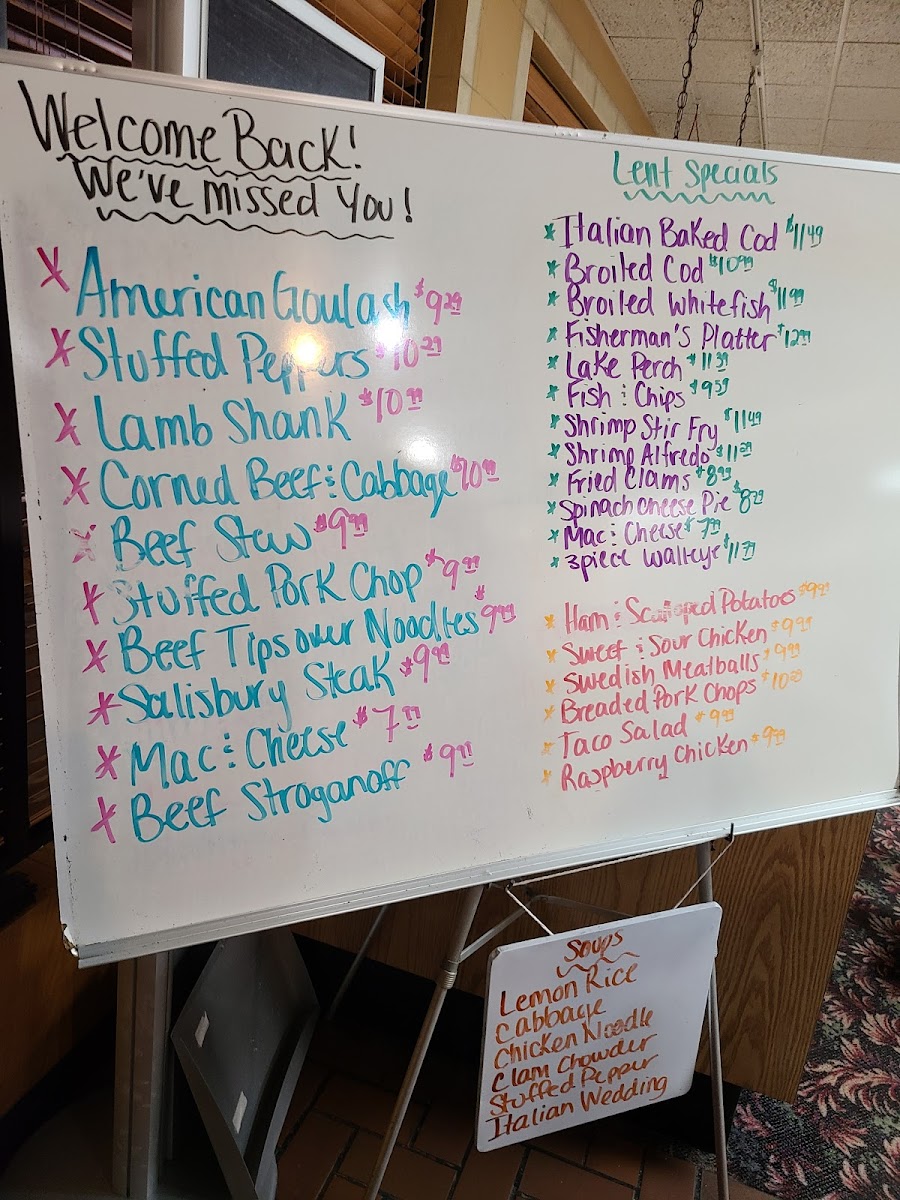 Welcome Back!
We've missed You!
American Goulash $9.29
Stuffed Peppers $10.29
Lamb Shank $10.99
Corned Beef & Cabbage $10.99
Beef Stew $9.99
Stuffed Pork Chop $9.99
Beef Tips over Noodles $9.99
Salisbury Steak $9.99
Mac & Cheese $7.99
Beef Stroganoff $9.99
Lent Specials
Italian Baked Cod $11.49
Broiled Cod $10.99
Broiled Whitefish $11.99
Fisherman's Platter $12.99
Lake Perch $11.39
Fish & Chips $9.59
Shrimp Stir Fry $11.49
Shrimp Alfredo $11.29
Fried Clams $8.99
Spinach Cheese Pie $8.29
Mac & Cheese $7.99
3 piece Walleye $11.79
Ham & Scalloped Potatoes $9.99
Sweet & Sour Chicken $9.99
Swedish Meatballs $9.99
Breaded Pork Chops $10.29
Taco Salad $9.99
Raspberry Chicken $9.99
Soups
Lemon Rice
Cabbage
Chicken Noodle
Clam Chowder
Stuffed Pepper
Italian Wedding